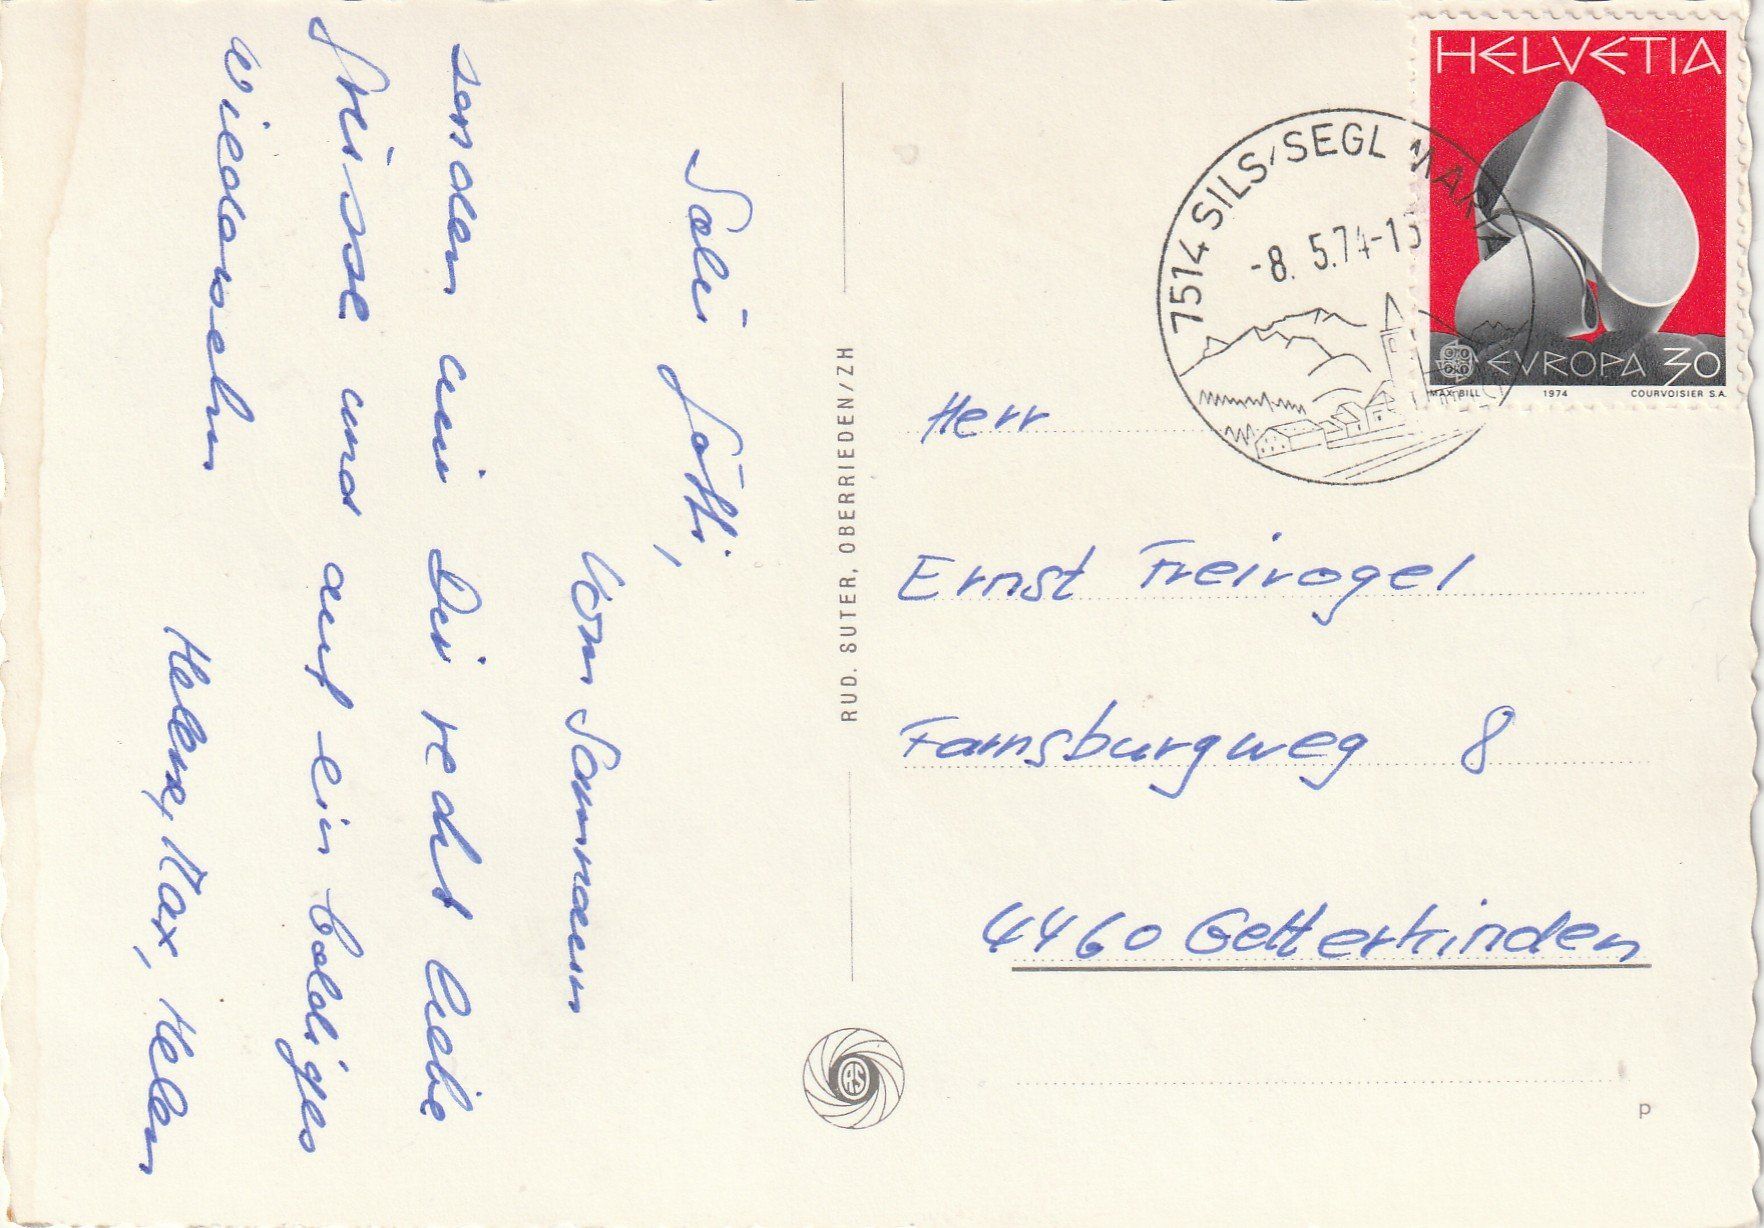 Sali Götti,
Vom Samnaun
senden wir Dir recht liebe
Grüsse und auf ein baldiges
Wiedersehn
Helene, Max, Helen
RUD. SUTER, OBERRIEDEN/ZH
RS
HELVETIA
EVROPA 30
MAX BILL 1974 COURVOISIER S.A.
7514 SILS/SEGL MARIA
-8. 5.74-
Herr
Ernst Freivogel
Farnsburgweg 8
4460 Gelterkinden
P